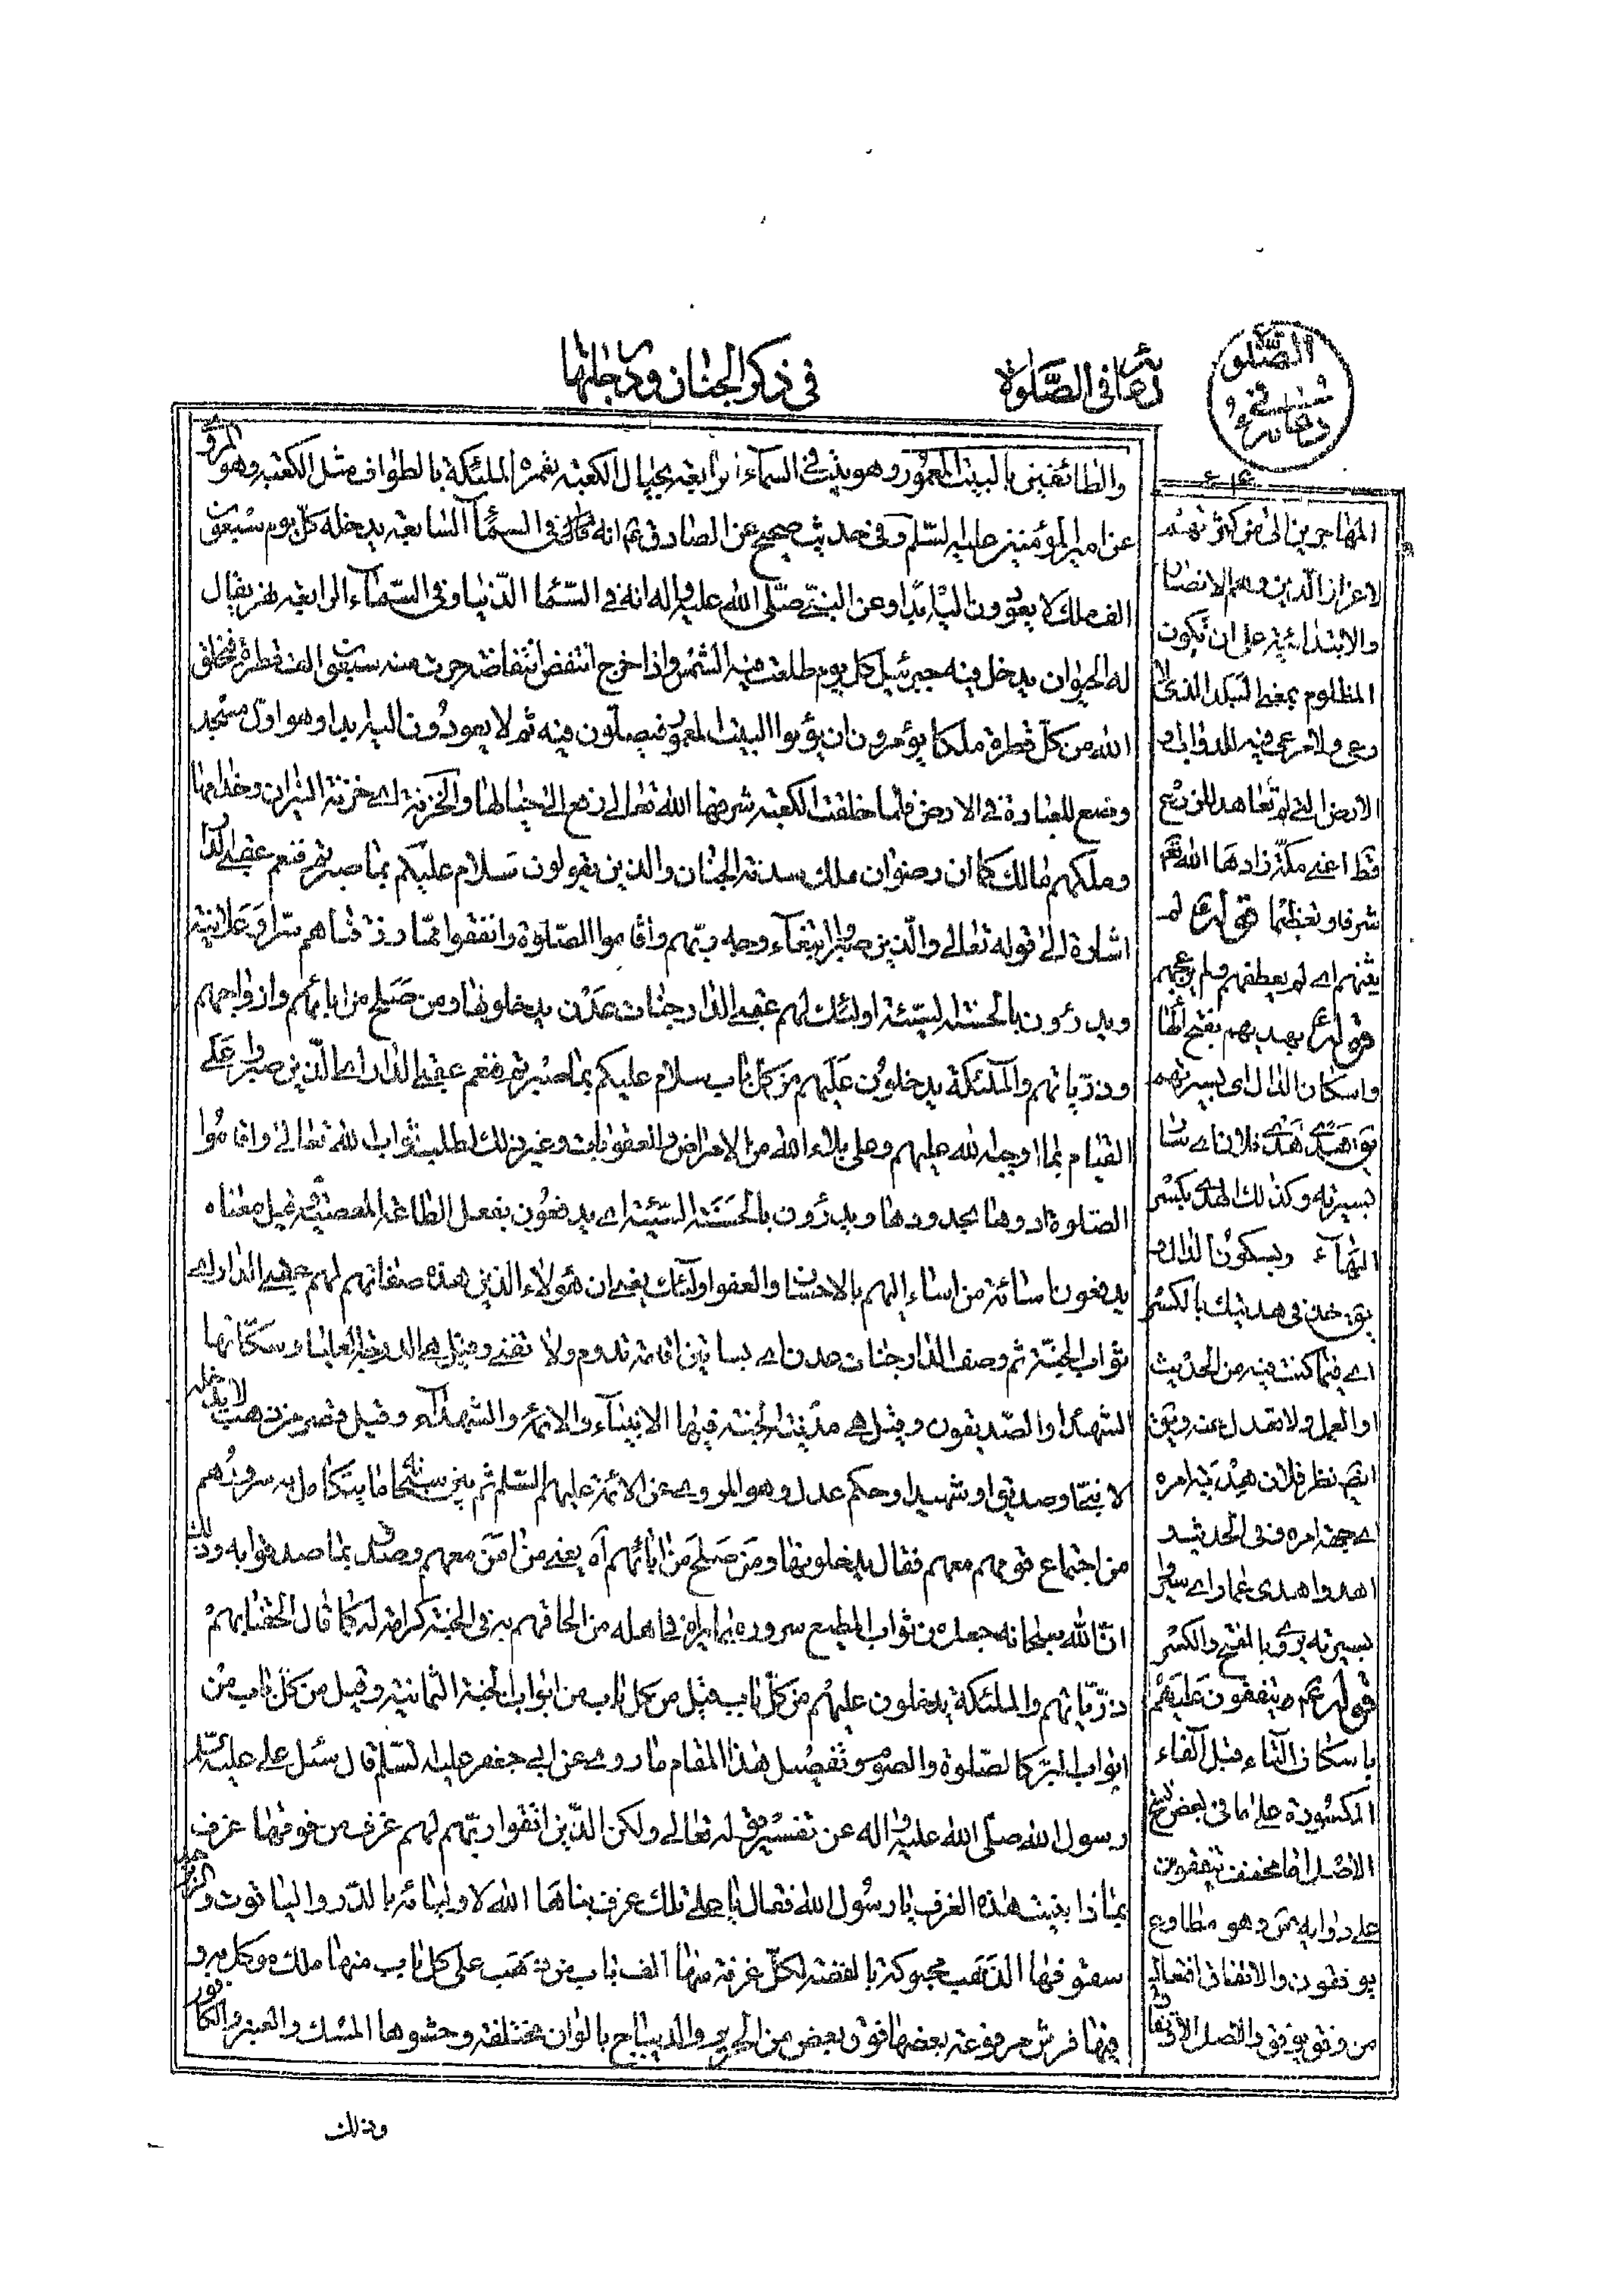 في ذكر الجنان ودرجاتها
دعائه في الصلوة
والطائفين بالبيت المعمور وهو بيت في السمآء الرابعة بحيال الكعبة يغمره الملئكة بالطواف مثل الكعبة وهو المروي
عن امير المؤمنين عليه السلم وفي حديث صحيح عن الصادق ع انه قال في السمآء السابعة يدخله كل يوم سبعون
الف ملك لا يعودون اليه ابدا وعن النبي صلى الله عليه واله انه في السماء الدنيا وفي السمآء الرابعة نهر يقال
له الحيوان يدخل فيه جبرئيل كل يوم طلعت فيه الشمس واذا خرج انتفض انتفاضة جرت منه سبعون الف قطرة فيخلق
الله من كل قطرة ملكا يؤمرون ان يؤتوا البيت المعمور فيصلون فيه ثم لا يعودون اليه ابدا وهو اول مسجد
وضع للعبادة في الارض فلما خلقت الكعبة شرفها الله تعالى رفع الى حيالها والخزنة اي خزنة النيران وخدامها
وملكهم مالك كما ان رضوان ملك سدنة الجنان والذين يقولون سلام عليكم بما صبرتم فنعم عقبى الدار
اشارة الى قوله تعالى والذين صبروا ابتغآء وجه ربهم واقاموا الصلوة وانفقوا مما رزقناهم سرا وعلانية
ويدرؤن بالحسنة السيئة اولئك لهم عقبى الدار جنات عدن يدخلونها ومن صلح من ابائهم وازواجهم
وذرياتهم والملئكة يدخلون عليهم من كل باب سلام عليكم بما صبرتم فنعم عقبى الدار اي الذين صبروا على
القيام بما اوجبه الله عليهم وعلى بلاء الله من الامراض والعقوبات وغير ذلك لطلب ثواب الله تعالى واقاموا
الصلوة ادوها بحدودها ويدرؤن بالحسنة السيئة اي يدفعون بفعل الطاعة المعصية وقيل معناه
يدفعون اسائة من اساء اليهم بالاحسان والعفو اولئك يعني ان هؤلاء الذين هذه صفاتهم لهم عقبى الدار اي
ثواب الجنة ثم وصف الدار جنات عدن اي بساتين اقامة تدوم ولا تفنى وقيل هي الدرجة العليا وسكانها
الشهدا والصديقون وقيل هي مدينة الجنة فيها الانبياء والائمة والشهدآء وقيل قصر من ذهب لا يدخله
الا نبي او صديق او شهيد او حكم عدل وهو المروي عن الائمة عليهم السلم ثم بين سبحانه ما يتكامل به سرورهم
من اجتماع قومهم معهم فقال يدخلونها ومن صلح من ابائهم آه يعني من امن معهم وصدق بما صدقوا به وذلك
ان الله سبحانه جعل من ثواب المطيع سروره بما يراه في اهله من الحاقهم به في الجنة كرامة له كما قال الحقنا بهم
ذرياتهم والملئكة يدخلون عليهم من كل باب قيل من كل باب من ابواب الجنة الثمانية وقيل من كل باب من
ابواب البر كالصلوة والصوم وتفصيل هذا المقام ما روي عن ابي جعفر عليه السلم قال سئل علي عليه السلم
رسول الله صلى الله عليه واله عن تفسير قوله تعالى ولكن الذين اتقوا ربهم لهم غرف من فوقها غرف
بماذا بنيت هذه الغرف يا رسول الله فقال يا علي تلك غرف بناها الله لاوليائه بالدر والياقوت والزبرجد
سقوفها الذهب محبوكة بالفضة لكل غرفة منها الف باب من ذهب على كل باب منها ملك موكل به و
فيها فرش مرفوعة بعضها فوق بعض من الحرير والديباج بالوان مختلفة وحشوها المسك والعنبر والكافور
وذلك
المهاجرين الى من كثرتهم
لاعزاز الدين وهم الانصار
والابتدائية على ان تكون
المظلوم بمعنى البلد الذي لا
رعي ولا مرعى فيه للدواب و
الارض التي لم تعاهد للزرع
قط اعني مكة زادها الله تعم
شرفا وتعظيما قوله ع لم
يثنهم اي لم يعطفهم ولم يرجعهم
قوله ع بهديهم بفتح الهاء
واسكان الدال اي بسيرتهم
يق هدى هدي فلان اي سار
بسيرته وكذلك الهدي بكسر
الهآء وبسكون الدال و
يق خذ في هديتك بالكسر
اي فيما كنت فيه من الحديث
او العمل ولا تعدل عنه ويق
ايضم نظر فلان هدية امره
اي جهة امره وفي الحديث
اهدوا هدى عمار اي سيروا
بسيرته يروى بالفتح والكسر
قوله ع متفقون عليهم
باسكان التاء قبل الفاء
المكسورة على ما في بعض نسخ
الاصل اما مخفف يتفقون
على رواية س وهو مطاوع
يوفقون والاتفاق افتعال
من وفق يوفق والفصل الاتفاق